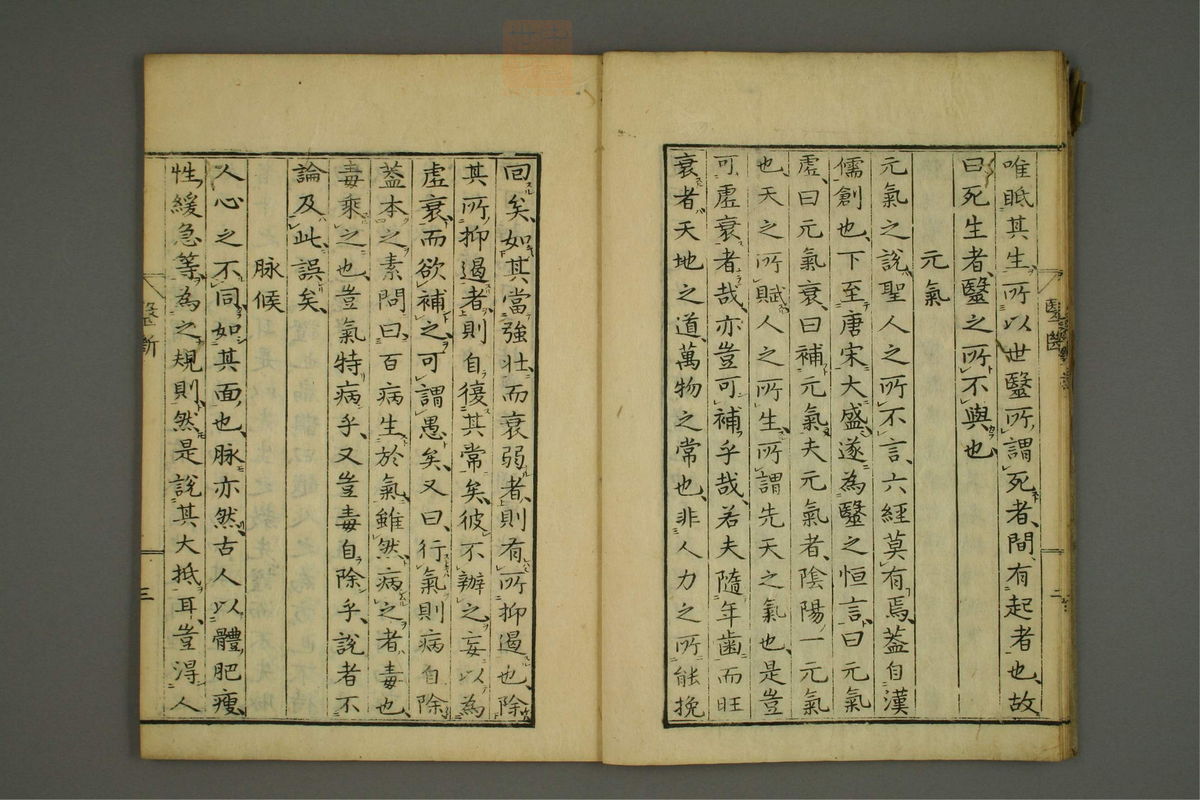 唯眂其生所以世毉所謂死者間有起者也故
曰死生者毉之所不與也
元氣
元氣之說聖人之所不言六經莫有焉蓋自漢
儒創也下至唐宋大盛遂為毉之恒言曰元氣
虛曰元氣衰曰補元氣夫元氣者陰陽一元氣
也天之所賦人之所生所謂先天之氣也是豈
可虛衰者哉亦豈可補乎哉若夫隨年歯而旺
衰者天地之道萬物之常也非人力之所能挽
回矣如其當強壯而衰弱者則有所抑遏也除
其所抑遏者則自復其常矣彼不辨之妄以為
虛衰而欲補之可謂愚矣又曰行氣則病自除
蓋本之素問曰百病生於氣雖然病之者毒也
毒乘之也豈氣特病乎又豈毒自除乎說者不
論及此誤矣
脉候
人心之不同如其面也脉亦然古人以體肥瘦
性緩急等為之規則然是說其大抵耳豈得人
毉斷
三